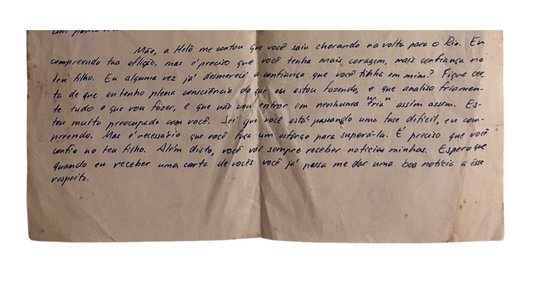 Mãe, a Helô me contou que você saiu chorando na volta para o Rio. Eu
compreendo tua aflição, mas é preciso que você tenha mais coragem, mais confiança no
teu filho. Eu alguma vez já desmereci a confiança que você tinha em mim? Fique cer-
ta de que eu tenho plena consciência do que eu estou fazendo, e que analiso friamen-
te tudo o que vou fazer, e que não vou entrar em nenhuma "fria" assim assim. Es-
tou muito preocupado com você. Sei que você está passando uma fase difícil, eu com-
preendo. Mas é necessário que você faça um esforço para superá-la. É preciso que você
confie no teu filho. Além disto, você vai sempre receber notícias minhas. Espero que
quando eu receber uma carta de vocês você já possa me dar uma boa notícia a esse
respeito.